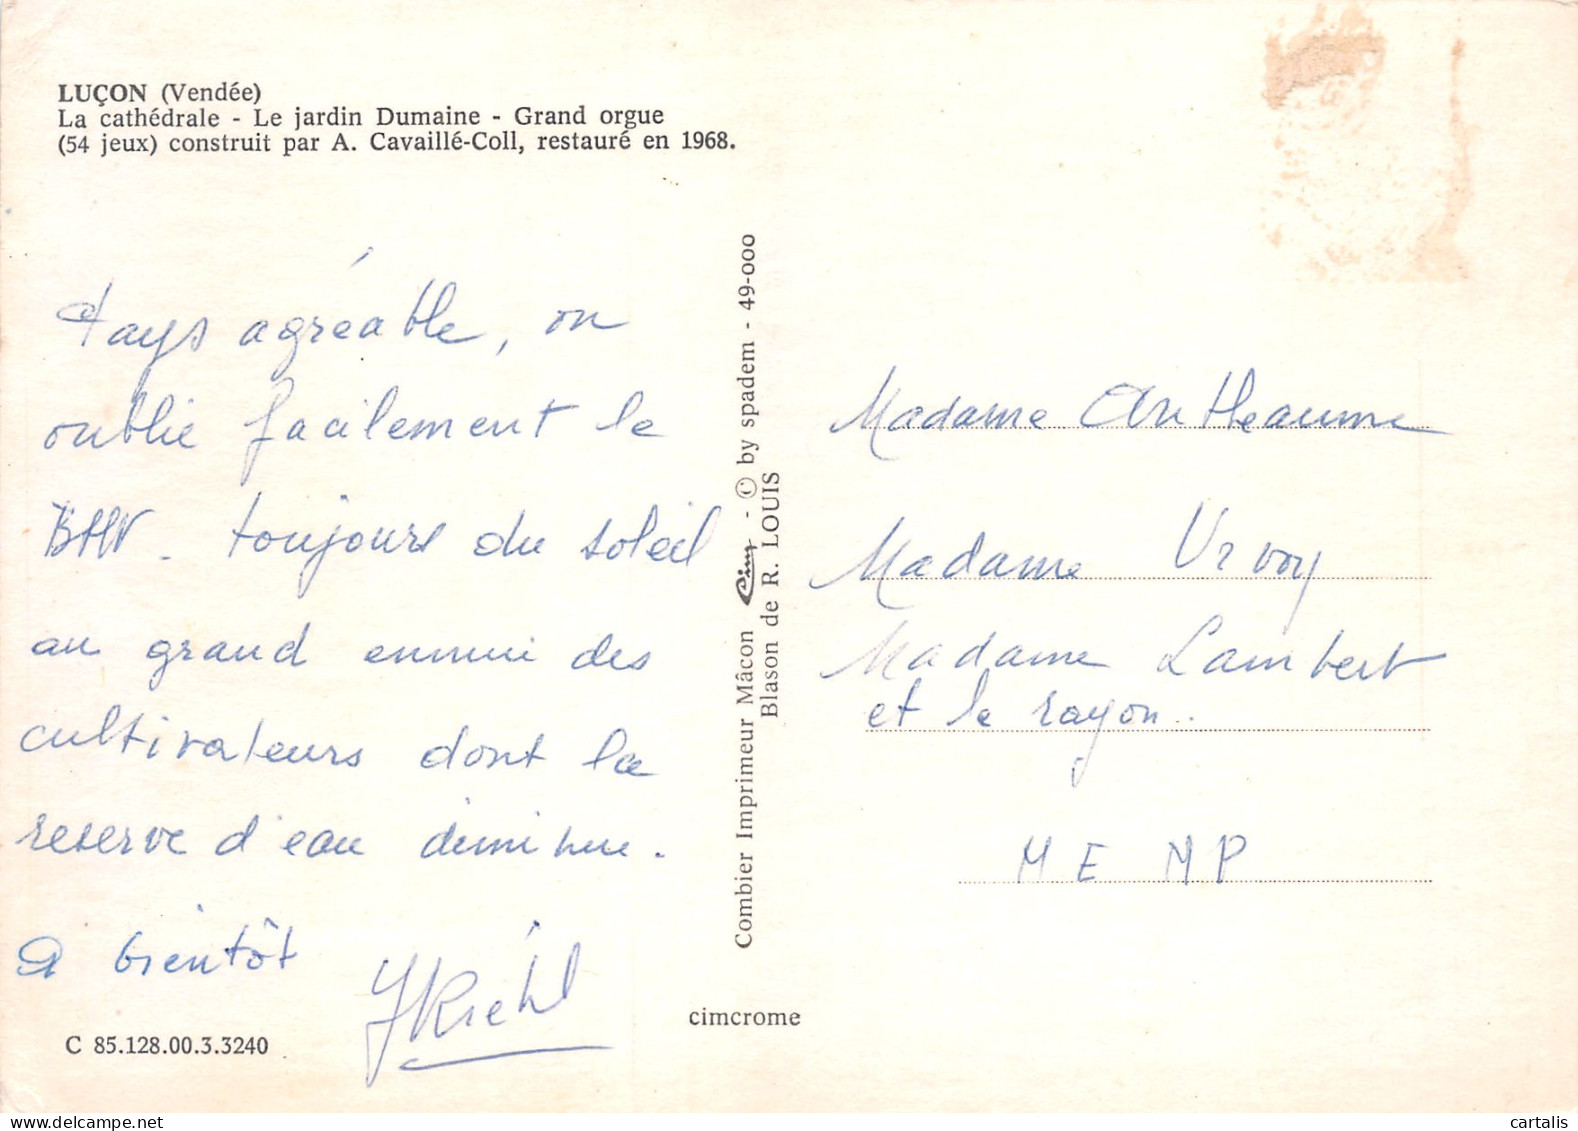 LUÇON (Vendée)
La cathédrale - Le jardin Dumaine - Grand orgue
(54 jeux) construit par A. Cavaillé-Coll, restauré en 1968.
Pays agréable, on
oublie facilement le
BHV. toujours du soleil
au grand ennui des
cultivateurs dont la
reserve d'eau diminue.
A bientôt
JKriehl
C 85.128.00.3.3240
Combier Imprimeur Mâcon Cim - © by spadem - 49-000
Blason de R. LOUIS
cimcrome
Madame Antheaume
Madame Urvoy
Madame Lambert
et le rayon..
M E M P
cartalis.com